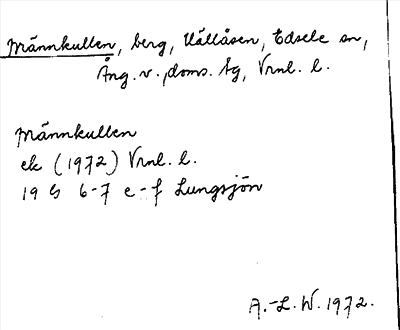 Männkullen, berg, Uällåsen, Edsele sn,
Ång. v. doms. lg, Vrnl. l.
Männkullen
ek (1972) Vrnl. l.
19 G 6-7 e-f Lungsjön
A.-L. W. 1972.